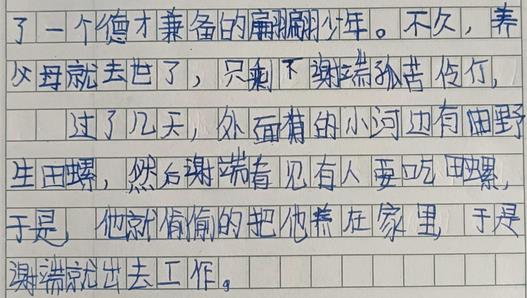 了一个德才兼备的翩翩少年。不久，养
父母就去世了，只剩下谢端孤苦伶仃，
过了几天，外面有的小河边有田野
生田螺，然后谢端看见有人要吃田螺，
于是，他就偷偷的把他养在家里，于是
谢端就出去工作。